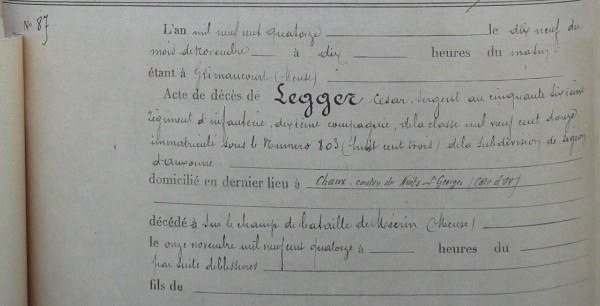 No. 87
L'an mil neuf cent quatorze le dix neuf du
mois de Novembre à dix heures du matin
étant à Grimaucourt (Meuse)
Acte de décès de Legger Cesar, sergent au cinquante sixième
régiment d'infanterie, dixième compagnie, de la classe mil neuf cent douze
immatriculé sous le Numero 803 (huit cent trois) de la Subdivision de
d'auxonne
domicilié en dernier lieu à Chaux canton de Nuits-St-Georges (Côte d'Or)
décédé à Sur le champ de bataille de Mécrin (Meuse)
le onze novembre mil neuf cent quatorze à heures du
par suite de blessures
fils de